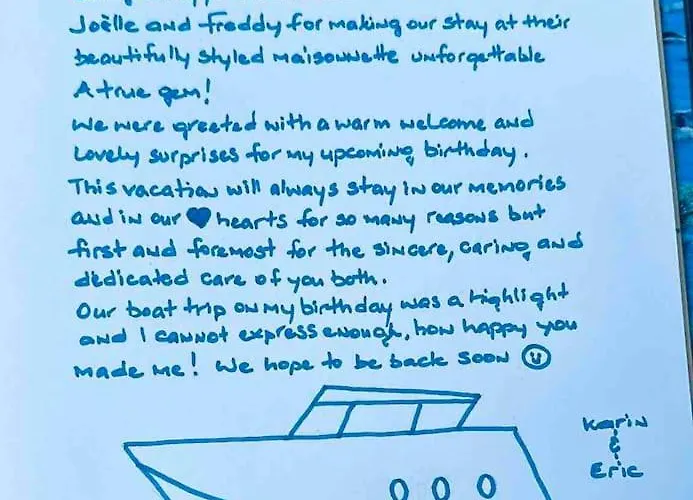 Joëlle and Freddy for making our stay at their
beautifully styled maisonnette unforgettable
A true gem!
We were greeted with a warm welcome and
Lovely surprises for my upcoming birthday.
This vacation will always stay in our memories
and in our 💙 hearts for so many reasons but
first and foremost for the sincere, caring and
dedicated care of you both.
Our boat trip on my birthday was a highlight
and I cannot express enough, how happy you
made me! We hope to be back soon ☺
Karin
&
Eric